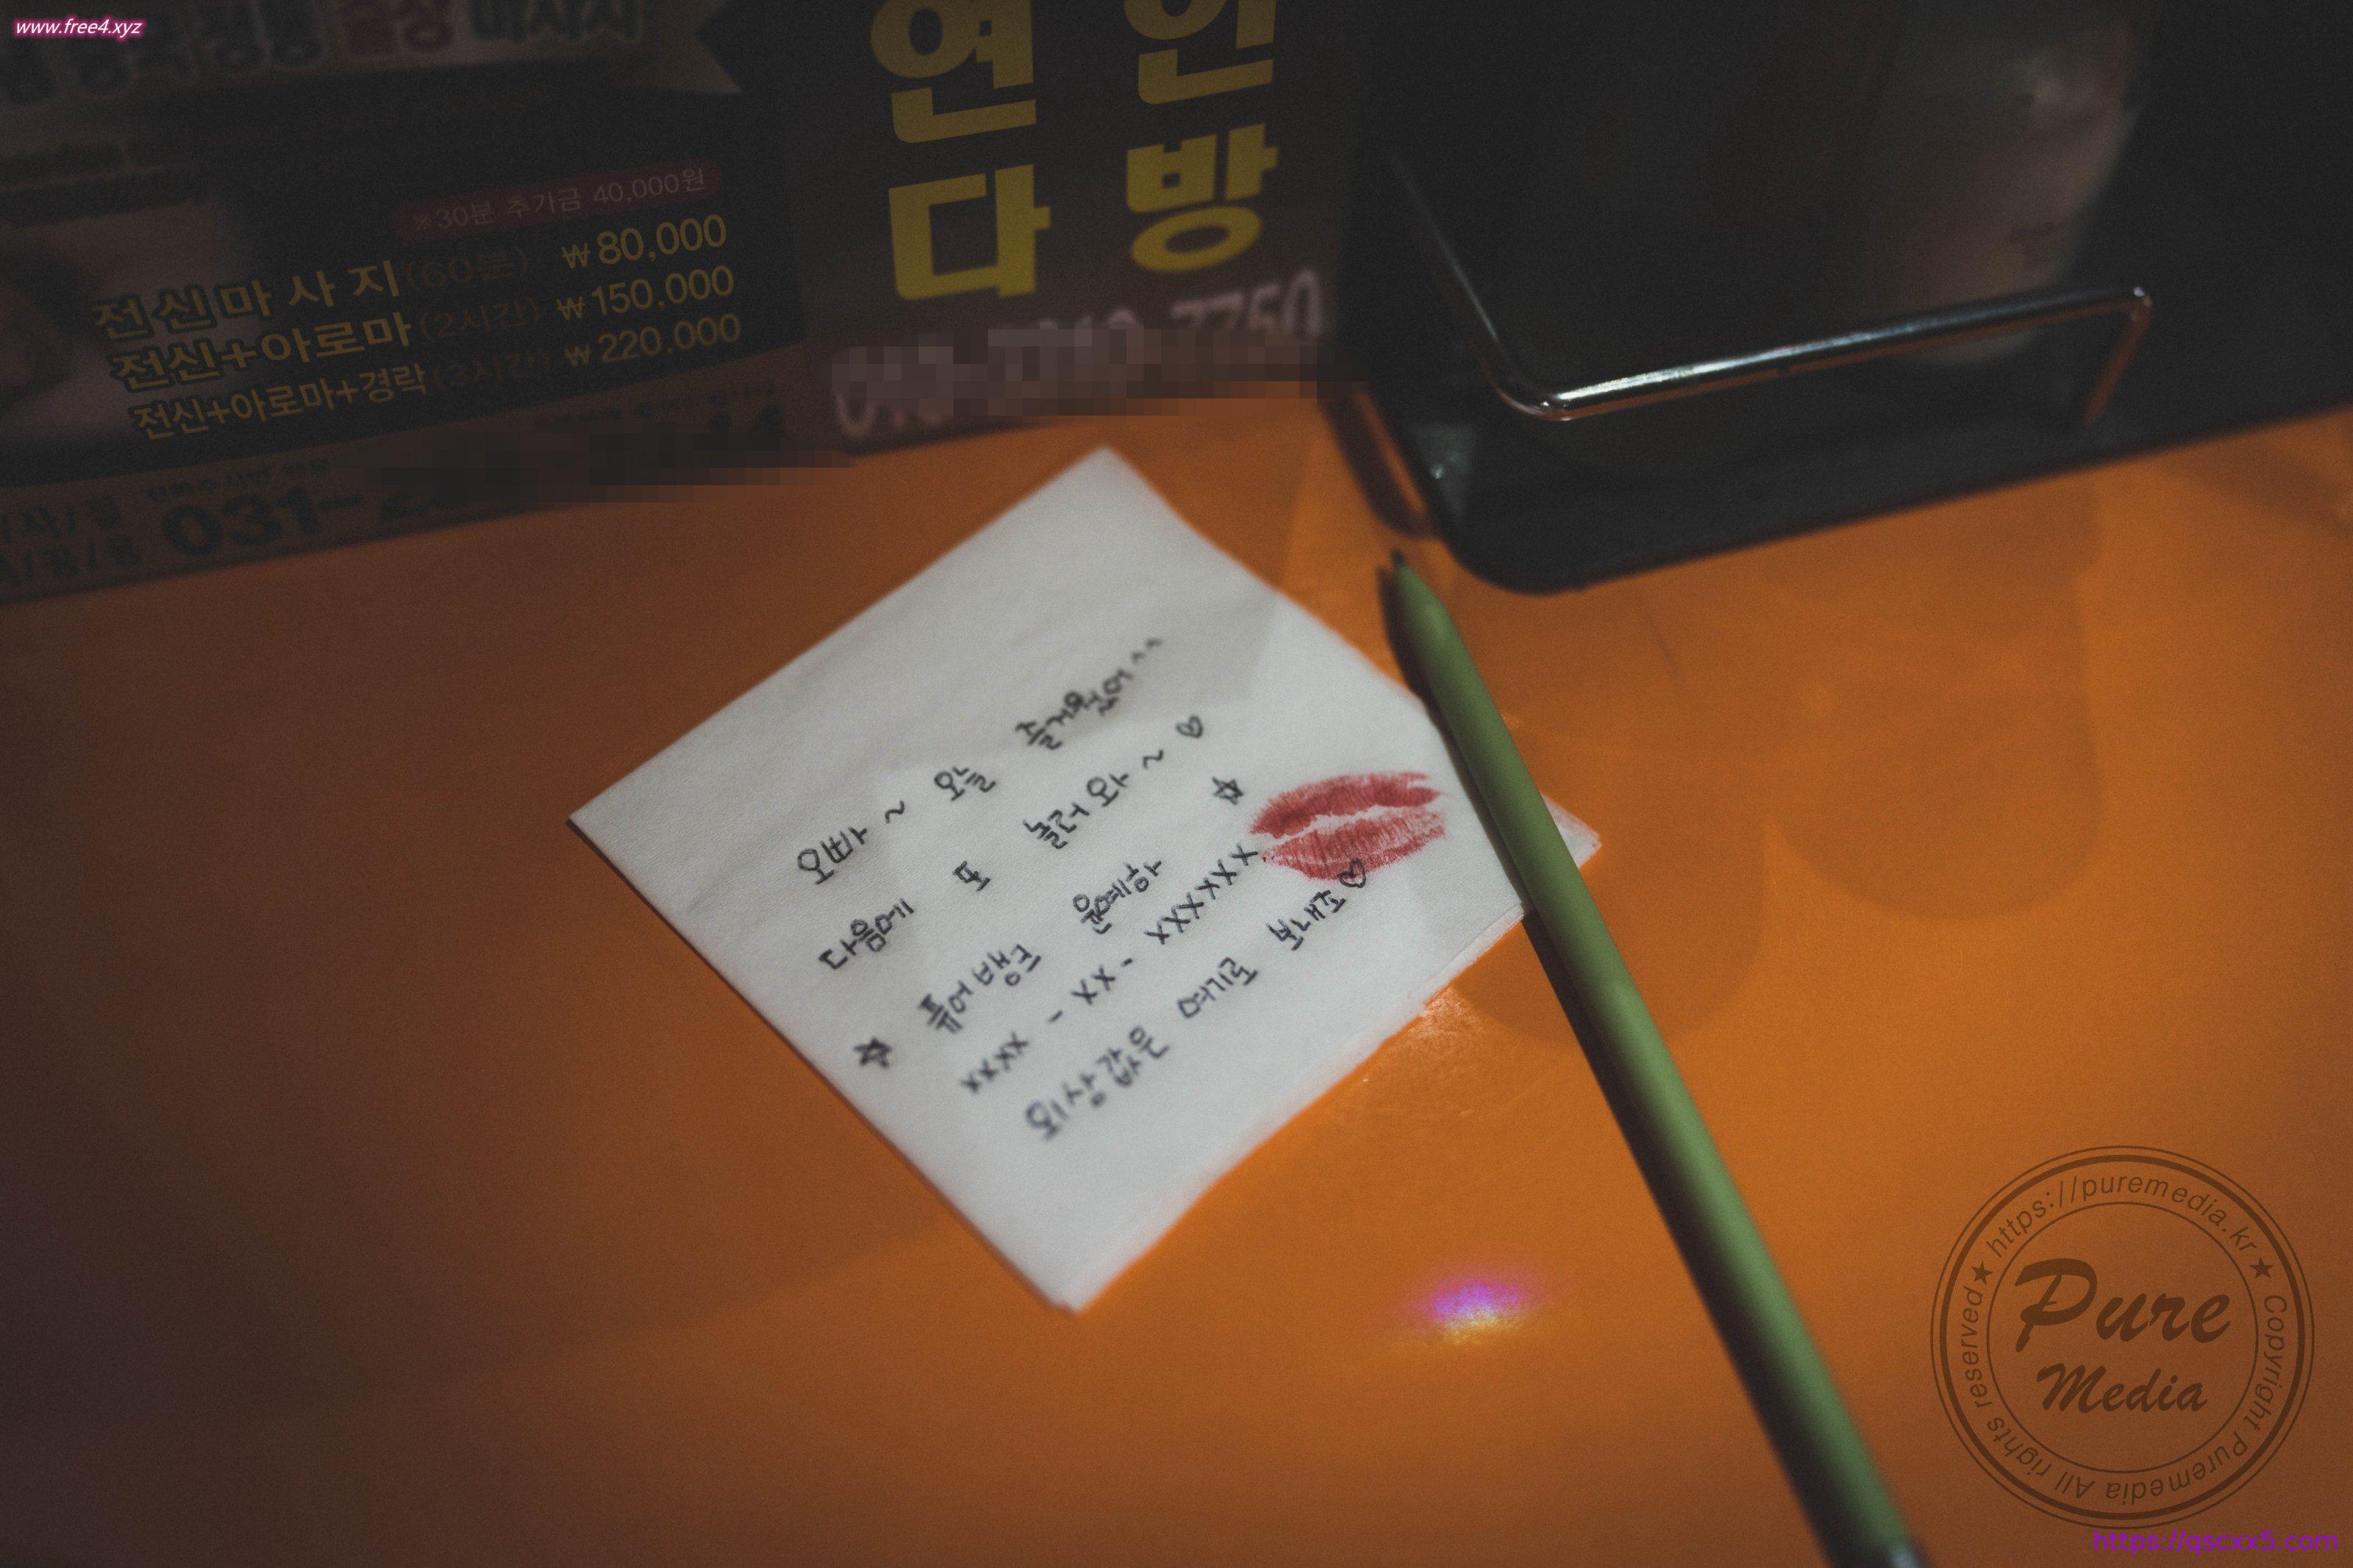 www.free4.xyz
출장 마사지
※30분 추가금 40,000원
전신마사지(60분) ₩80,000
전신+아로마(2시간) ₩150,000
전신+아로마+경락(3시간) ₩220,000
031-2
연인
다방
오빠~ 오늘 즐거웠어^^
다음에 또 놀러와~♡
☆ 퓨어뱅크 윤예하 ☆
xxxx - xx - xxxxxx
외상값은 여기로 보내죠♡
★ https://puremedia.kr ★ Copyright Puremedia All rights reserved
Pure
Media
https://qscxx5.com